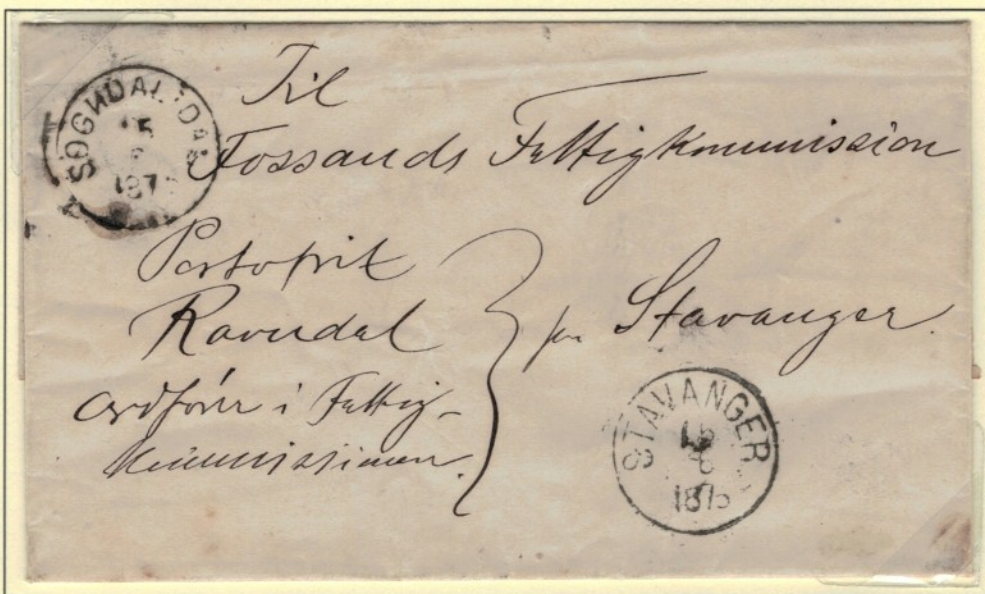 SOGNDAL I DAL
15
187
Til
Fossands Fattigkommission
Portofrit
Ravndal
Ordfører i Fattig-
kommissionen.
pr. Stavanger.
STAVANGER
15
6
187